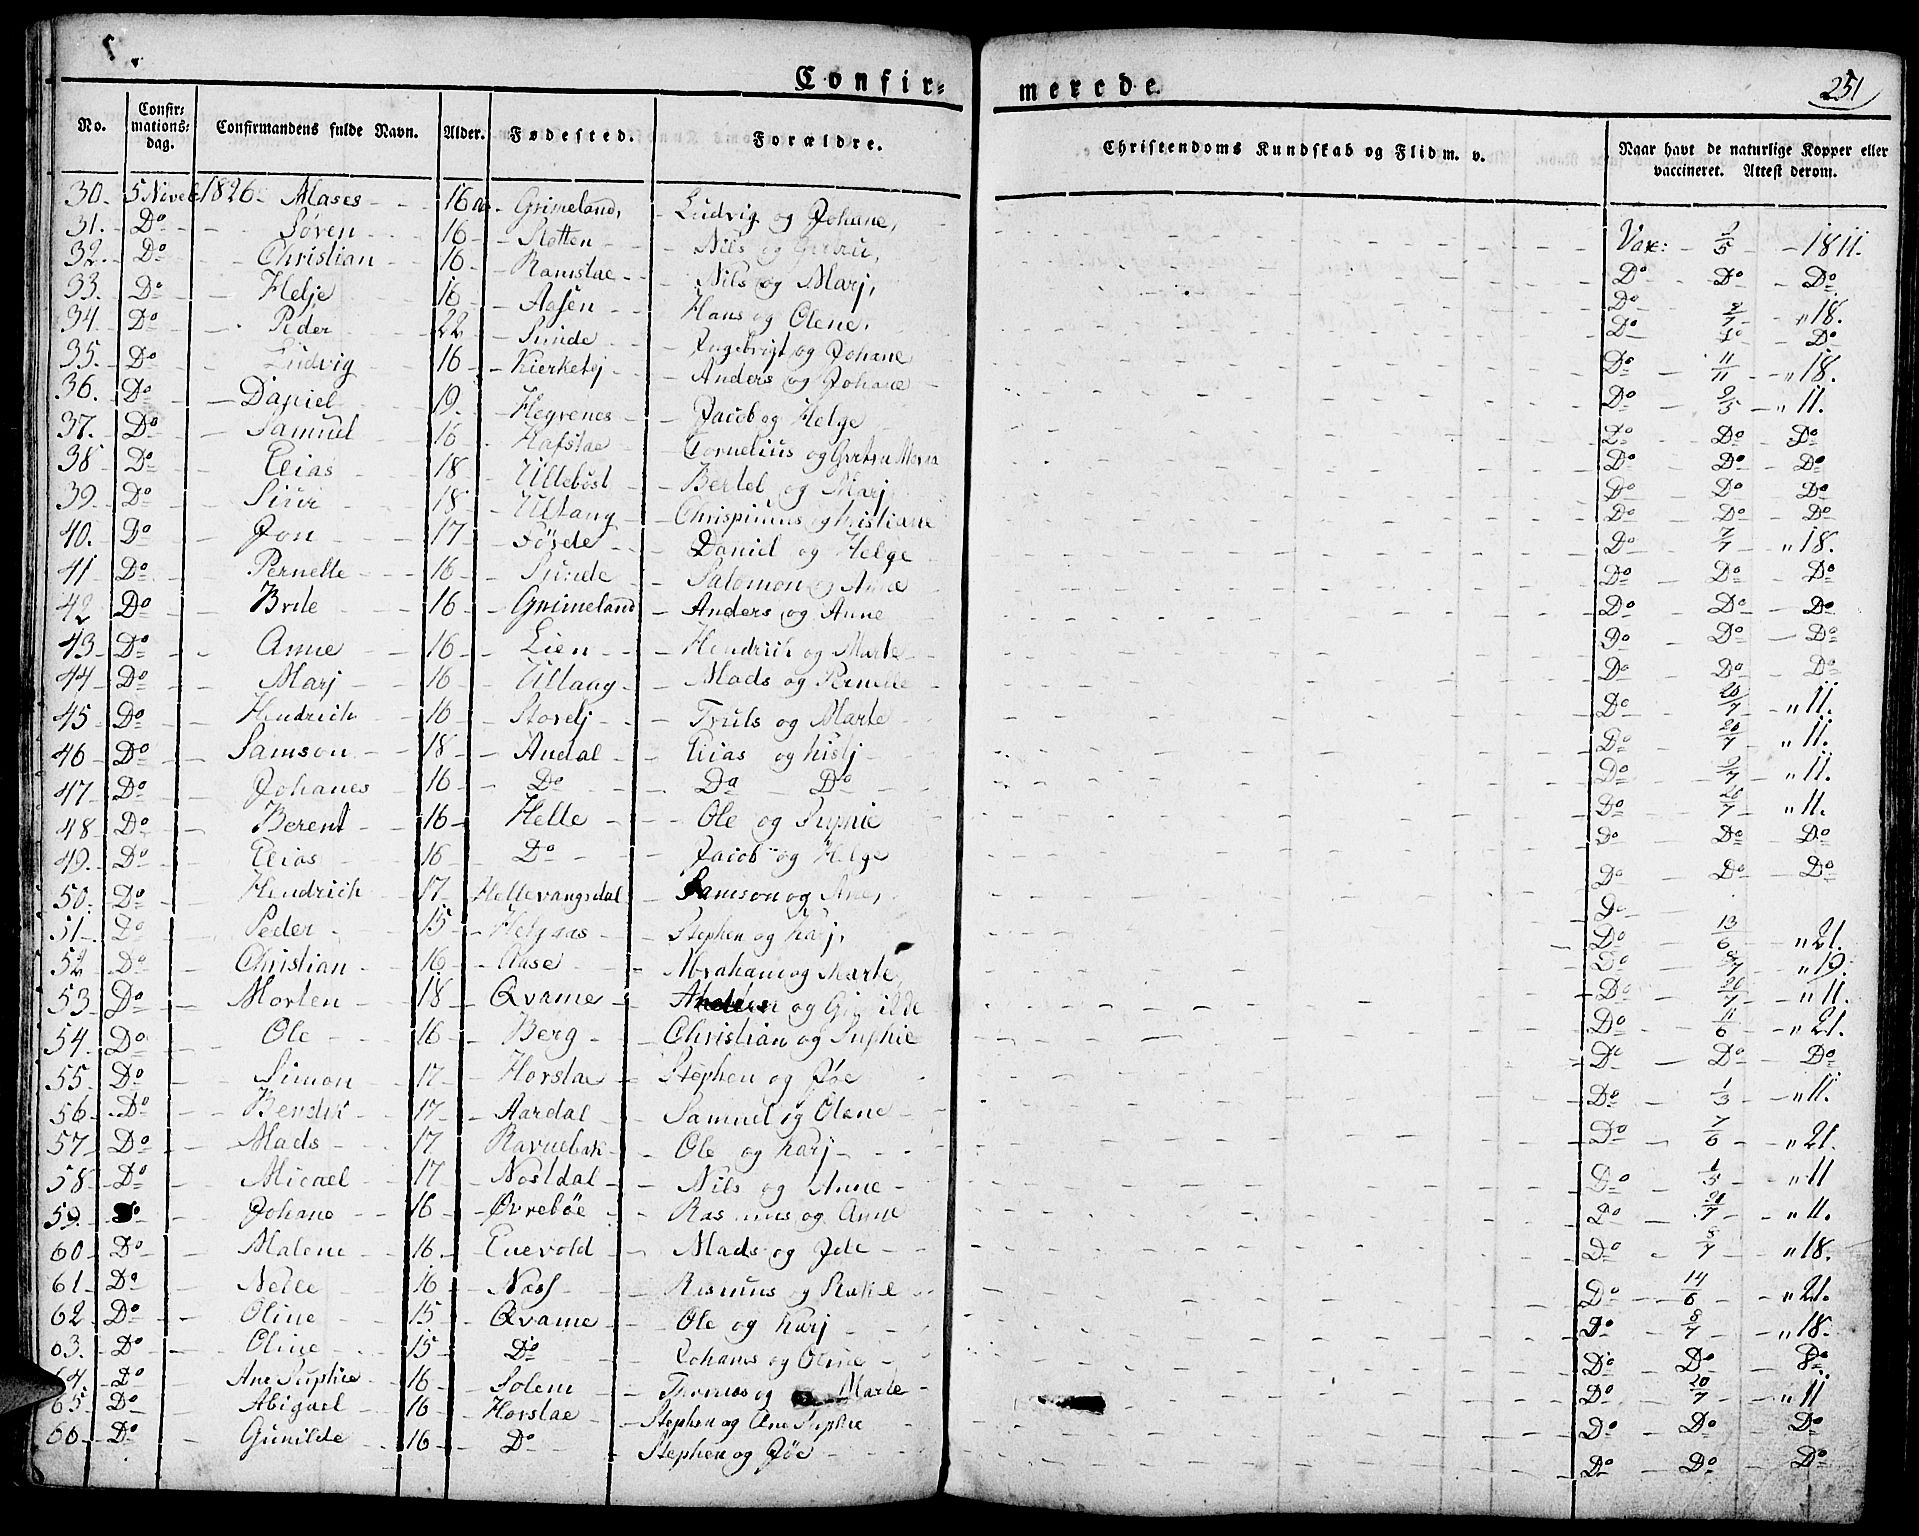 Confir=
merede.
251
No.
Confir=
mations=
dag.
Confirmandens fulde Navn.
Alder.
Fødested.
Forældre.
Christendoms Kundskab og Flid m. v.
Naar havt de naturlige Kopper eller
vaccineret. Attest derom.
30. 5 1826 Moses 16 Grimeland, Ludvig og Johane, Vax: 2/5 1811.
31. Do Søren 16 Stotten Nils og Do Do Do
32. Do Christian 16 Ramstae Nils og Marj, Do 2/7 " 18.
33. Do Helje 16 Aasen Hans og Olene, Do Do
34. Do Peder 22 Sunde Engebrigt og Johane Do 11/11 " 18.
35. Do Ludvig 16 Kierketej Anders og Johane Do 2/5 " 11.
36. Do Daniel 19. Hegrenes Jacob og Helge Do Do Do
37. Do Samuel 16 Hafstae Cornelius og Do Do Do
38 Do Elias 18 Ullebøst Bertel og Marj Do Do Do
39. Do Siur 18 Ullang Chrispinus og Christiane Do Do Do
40. Do Jon 17 Förde Daniel og Helge Do 7/7 " 18.
41 Do Pernelle 16 Sunde Salomon og Anne Do Do Do
42 Do Brite 16 Grimeland Anders og Anne Do Do Do
43 Do Anne 16 Lien Hendrich og Marte Do Do Do
44 Do Marj 16 Ullang Mads og Pernelle Do Do Do
45 Do Hendrich 16 Storelj Truls og Marte Do 20/7 " 11.
46 Do Samson 18 Andal Elias og Kistj Do 20/7 " 11.
47. Do Johanes 16 Do Do Do Do " 11.
48. Do Berent 16 Helle Ole og Suphie Do 20/7 " 11.
49. Do Elias 16 Do Jacob og Helge Do Do Do
50. Do Hendrich 17. Hellevangsdal Samson og Ane, Do Do Do
51 Do Peder 15 Stephen og Karj, Do 13/6 " 21.
52 Do Christian 16 Aase Abraham og Marte Do " 19.
53 Do Morten 18 Qvame og Do 20/7 " 11.
54. Do Ole 16 Berg Christian og Suphie Do 11/6 " 21.
55 Do Simon 17 Horstae Stephen og Jøe Do Do Do
56 Do Bendik 17 Aardal Samuel og Olene Do 1/3 " 11.
57 Do Mads 17 Ravnebak Ole og Karj Do 7/6 " 21.
58. Do Micael 17 Nostdal Nils og Anne Do 1/5 " 11
59 Do Johane 16 Øvrebøe Rasmus og Anne Do 20/7 " 11.
60 Do Malene 16 Enevold Mads og Ide Do 8/7 " 18.
61 Do Nelle 16 Nass Rasmus og Rakel Do 14/6 " 21.
62 Do Oline 15 Qvame Ole og Karj Do 8/7 " 18.
63. Do Oline 15 Do Johans og Oline Do Do Do
64 Do Ane Suphie 16 Solem Thomas og Marte Do 20/7 " 11
65 Do Abigael 16 Horstae Stephen og Ane Suphie Do Do Do
66 Do Gunilde 16 Do Stephen og Jøe Do Do Do